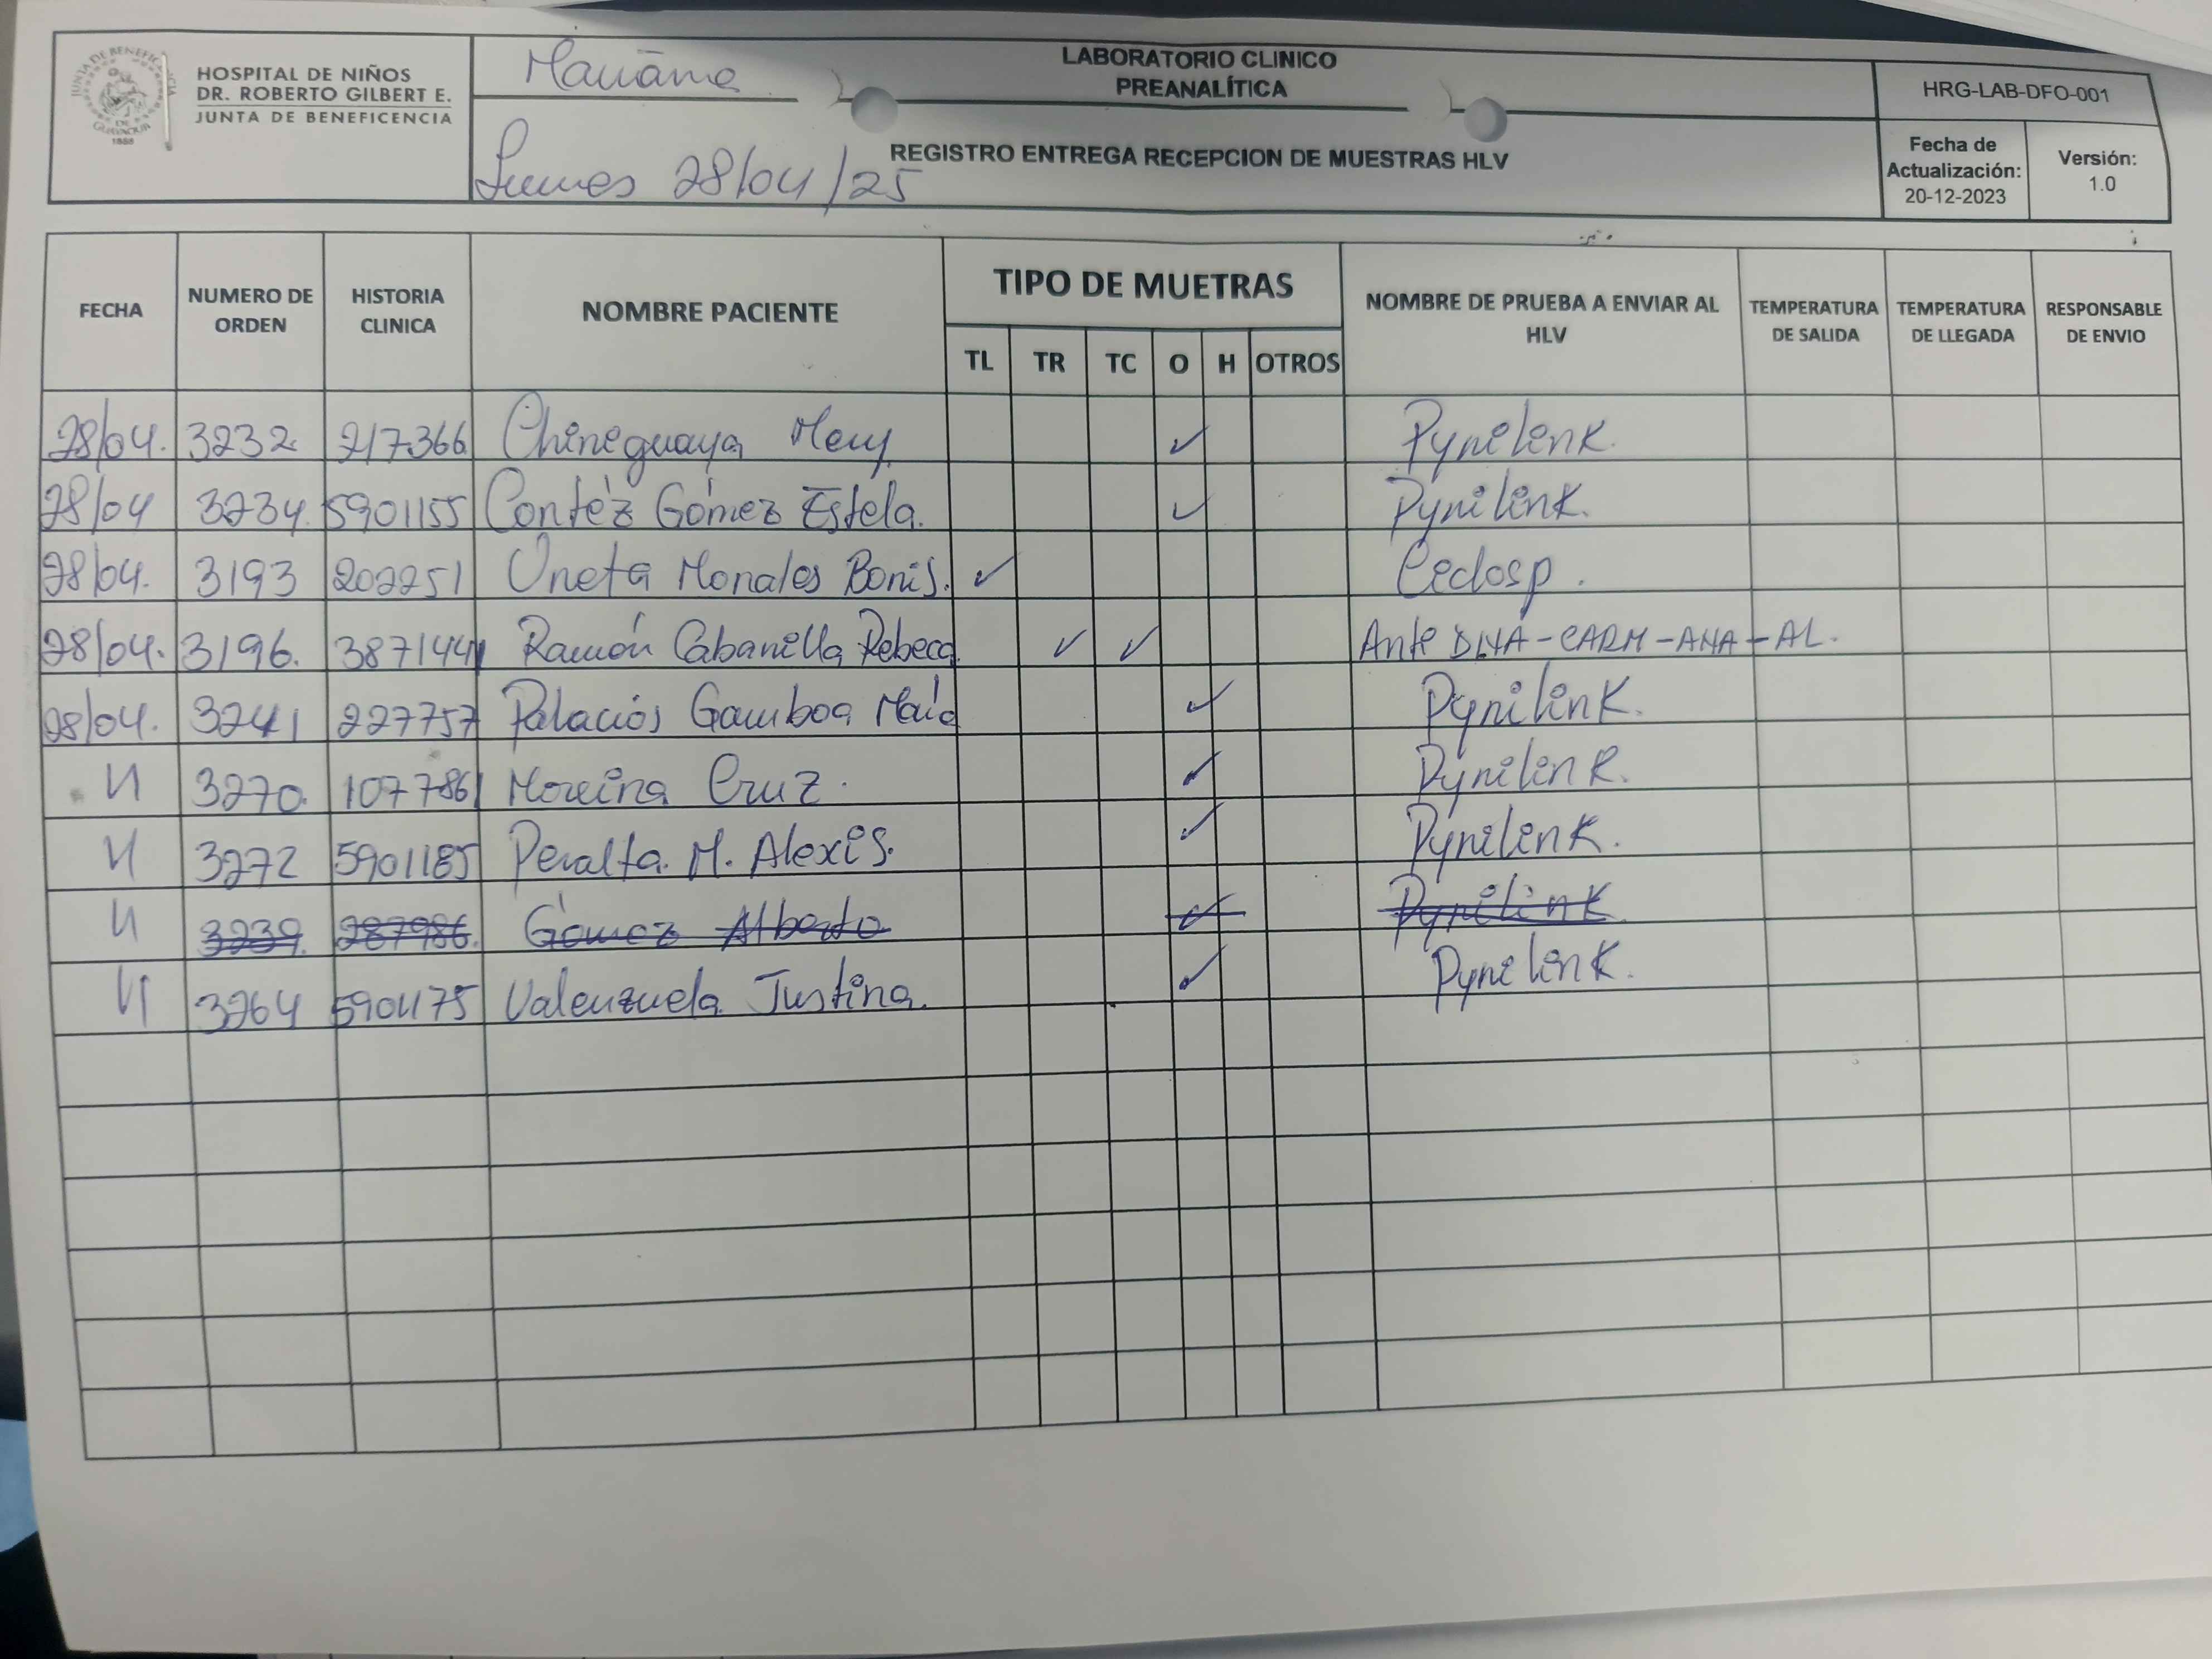 HOSPITAL DE NIÑOS
DR. ROBERTO GILBERT E.
JUNTA DE BENEFICENCIA
Mañana
Lunes 28/04/25
LABORATORIO CLINICO
PREANALÍTICA
REGISTRO ENTREGA RECEPCION DE MUESTRAS HLV
HRG-LAB-DFO-001
Fecha de Actualización: 20-12-2023
Versión: 1.0
FECHA NUMERO DE ORDEN HISTORIA CLINICA NOMBRE PACIENTE TIPO DE MUETRAS NOMBRE DE PRUEBA A ENVIAR AL HLV TEMPERATURA DE SALIDA TEMPERATURA DE LLEGADA RESPONSABLE DE ENVIO
TL TR TC O H OTROS
28/04. 3232. 217366 Chineguaya ✓ Pynilink.
28/04 3234. 5901155 Gómez Estela. ✓ Pynilink.
28/04. 3193 202251 ✓
28/04. 3196. Ramón Cabanilla Rebeca ✓ ✓ -ANA-AL.
28/04. 3241 227757 Palacios Gamboa ✓ Pynilink.
3270. 107786 Moreina Cruz. ✓ Pynilink.
3272 5901185 Peralta. M. Alexis. ✓ Pynilink.
3239. 287986. Gómez Alberto ✓ Pynilink.
3264 5901175 Valenzuela Justina. ✓ Pynilink.